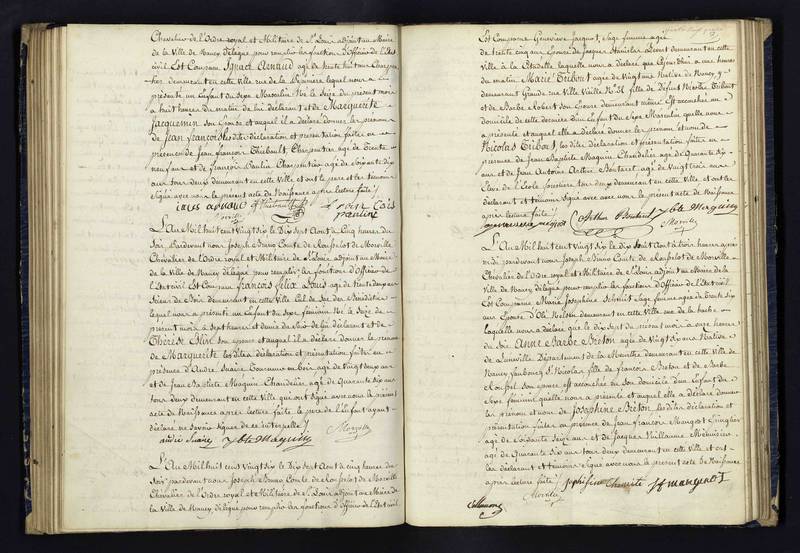 Chevalier de l'Ordre royal et Militaire de St Louis adjoint au Maire
de la Ville de Nancy délégué pour remplir les fonctions d'Officier de l'Etat
civil Est Comparu Ignace Arnaud agé de trente huit ans
demeurant en cette ville rue de la lequel nous a
présenté un Enfant du Sexe Masculin Né le Seize du présent mois
à huit heures du matin de lui déclarant et de Marguerite
Jacquemin son Epouse et auquel il a déclaré donner les prénoms
de Jean françois les dites déclaration et présentation faites en
présence de Jean françois Thiébault Charpentier agé de Trente
neuf ans et de françois Paulin Charpentier agé de Soixante dix
ans tous deux demeurant en cette Ville et ont le père et les témoins
signé avec nous le présent acte de Naissance après lecture faite
Morville
L'An Mil huit cent Vingt Six le Dix Sept Aout à Cinq heures du
Soir Pardevant nous Joseph Bruno Comte de Morville
Chevalier de l'Ordre royal et Militaire de St Louis adjoint au Maire
de la Ville de Nancy délégué pour remplir les fonctions d'Officier de
l'Etat civil Est Comparu françois felix Louis agé de trente deux ans
Scieur de Bois demeurant en cette Ville Cul de Sac des Bénédictins
lequel nous a présenté un Enfant du Sexe féminin Né le Seize du
présent mois à Sept heures et demie du Soir de lui déclarant et de
Thérèse Olive son épouse et auquel il a déclaré donner le prénom
de Marguerite les dites déclaration et présentation faites en
présence d'André Suaire Tourneur en bois agé de Vingt deux ans
et de Jean Baptiste Maquin Chandelier agé de Quarante Six ans
tous deux demeurant en cette Ville qui ont signé avec nous le présent
acte de Naissance après lecture faite le père de l'Enfant ayant
déclaré ne savoir signer de ce interpellé
andré Suaire J bte Maquin Morville
L'An Mil huit cent Vingt Six le Dix Sept Aout à cinq heures du
Soir pardevant nous Joseph Bruno Comte de Morville
Chevalier de l'Ordre royal et Militaire de St Louis adjoint au Maire de
la Ville de Nancy délégué pour remplir les fonctions d'Officier de l'Etat civil
Est Comparue Geneviève Jacquot, Sage femme agée
de trente cinq ans Epouse de Jacques Stanislas demeurant en cette
Ville à la Citadelle laquelle nous a déclaré que aujourd'hui à une heure
du matin Marie Tribout agée de Vingt ans Native de Nancy, y
demeurant Grande rue Ville Vieille No 31 fille de Défunt Nicolas Tribout
et de Barbe Robert son Epouse demeurant même Est accouchée en
domicile de cette dernière d'un Enfant du Sexe Masculin quelle nous
a présenté et auquel elle a déclaré donner les prénom et nom de
Nicolas Tribout, les dites déclaration et présentation faites en
présence de Jean Baptiste Maquin Chandelier agé de Quarante Six
ans et de Jean Antoine Arthur Boutaret agé de Vingt trois ans
Elève de l'Ecole forestière tous deux demeurant en cette Ville, et ont les
déclarant et témoins signé avec nous le présent acte de Naissance
après lecture faite
J bte Maquin
Morville
L'An Mil huit cent Vingt Six le Dix Sept Aout à trois heures après
midi pardevant nous Joseph Bruno Comte de Morville
Chevalier de l'Ordre royal et Militaire de St Louis adjoint au Maire de la
Ville de Nancy délégué pour remplir les fonctions d'Officier de l'Etat civil
Est Comparue Marie Josephine Schmitt Sage femme agée de Trente Six
ans Epouse d' demeurant en cette Ville rue de la
Laquelle nous a déclaré que le dix Sept du présent mois à onze heures
du Soir Anne Barbe Breton agée de Vingt Six ans Native
de Luneville Département de la Meurthe demeurant en cette Ville de
Nancy faubourg St Nicolas fille de françois Breton et de Barbe
son épouse est accouchée en son domicile d'un Enfant du
Sexe féminin quelle nous a présenté et auquel elle a déclaré donner
les prénom et nom de Josephine Breton, les dites déclaration et
présentation faites en présence de Jean françois Mangeot
agé de Soixante ans et de Jacques Villaume
agé de Quarante Six ans tous deux demeurant en cette Ville et ont
les déclarant et témoins signé avec nous le présent acte de Naissance
après lecture faite
Morville jf mangeot